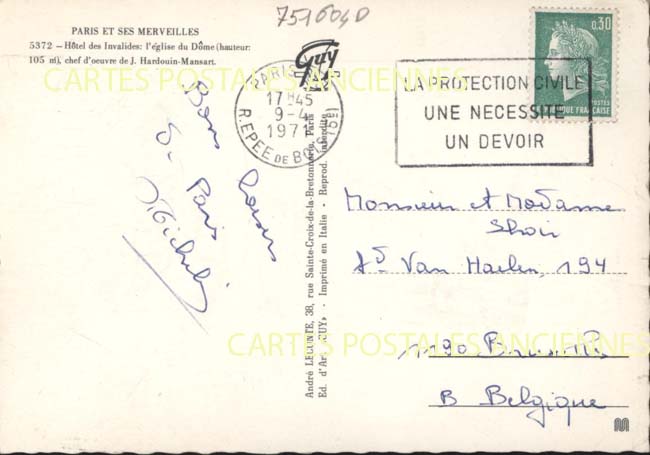 751604D
PARIS ET SES MERVEILLES
5372 – Hôtel des Invalides: l'église du Dôme (hauteur:
105 m), chef d'oeuvre de J. Hardouin-Mansart.
Guy
PARIS
17H45
9-4
1971
R. EPEE DE BOIS (5e)
LA PROTECTION CIVILE
UNE NECESSITE
UN DEVOIR
0,30
POSTES
REPUBLIQUE FRANCAISE
CARTES POSTALES ANCIENNES
Bons baisers
de Paris
Michel
André LECONTE, 38, rue Sainte-Croix-de-la-Bretonnerie, Paris
Ed. d'Art «GUY» - Imprimé en Italie - Reprod. interdite
Monsieur et Madame
Av. Van Haelen, 194
1190 Bruxelles
B Belgique
CARTES POSTALES ANCIENNES